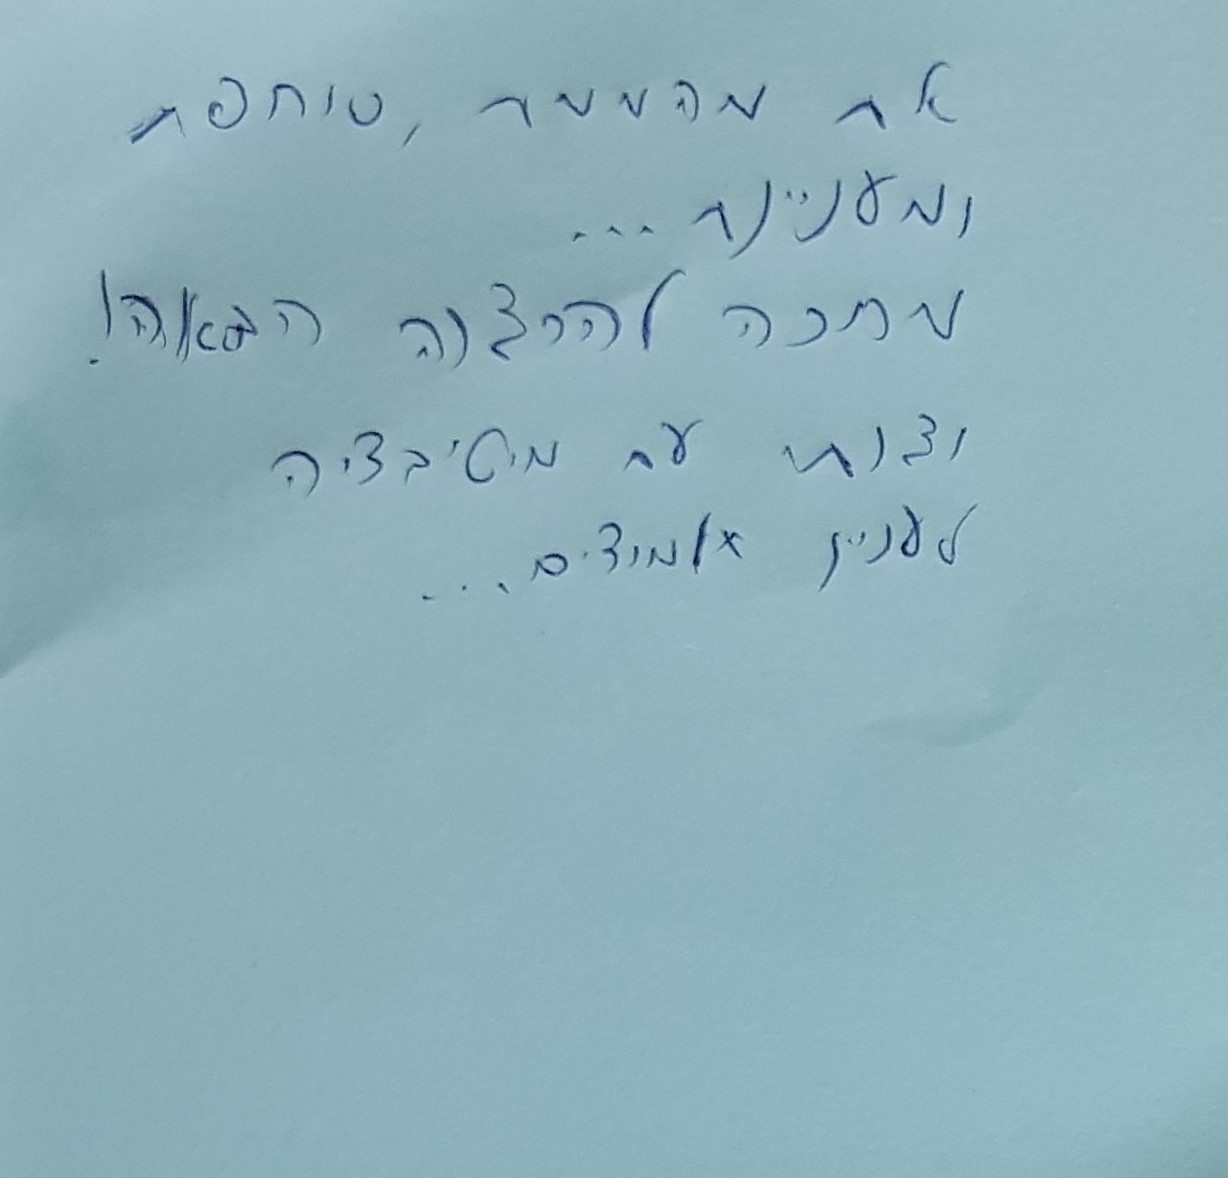 את מהממת, סוחפת
ומעניינת...
מחכה להרצאה הבאה!
וצוות עם מוטיבציה
לעניין תלמידים...